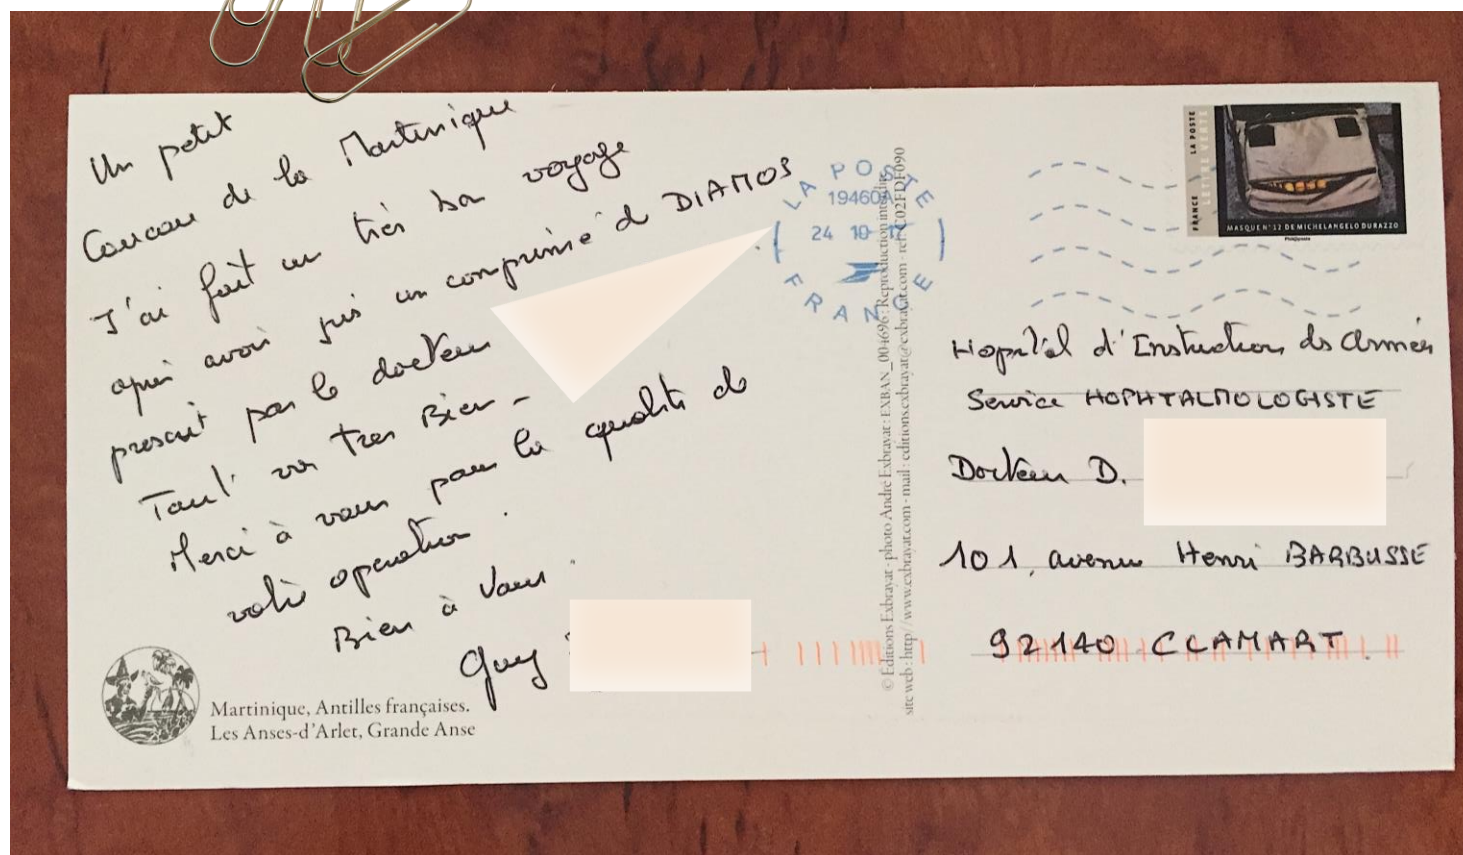 Un petit
Coucou de la Martinique
J'ai fait un très bon voyage
après avoir pris un comprimé de DIAMOX
prescrit par le docteur
Tout va très Bien -
Merci à vous pour la qualité de
votre operation.
Bien à Vous.
Guy
Martinique, Antilles françaises.
Les Anses-d'Arlet, Grande Anse
© Éditions Exbrayat - photo André Exbrayat : EXBAN_004696 : Reproduction interdite
site web : http://www.exbrayat.com - mail : editions.exbrayat@exbrayat.com - ref : C02FDF090
LA POSTE
19460A
24 10 17
FRANCE
FRANCE LA POSTE
LETTRE VERTE
MASQUE N°12 DE MICHELANGELO DURAZZO
Phil@poste
Hopital d'Instruction des Armées
Service HOPHTALMOLOGISTE
Docteur D.
101, avenue Henri BARBUSSE
92140 CLAMART